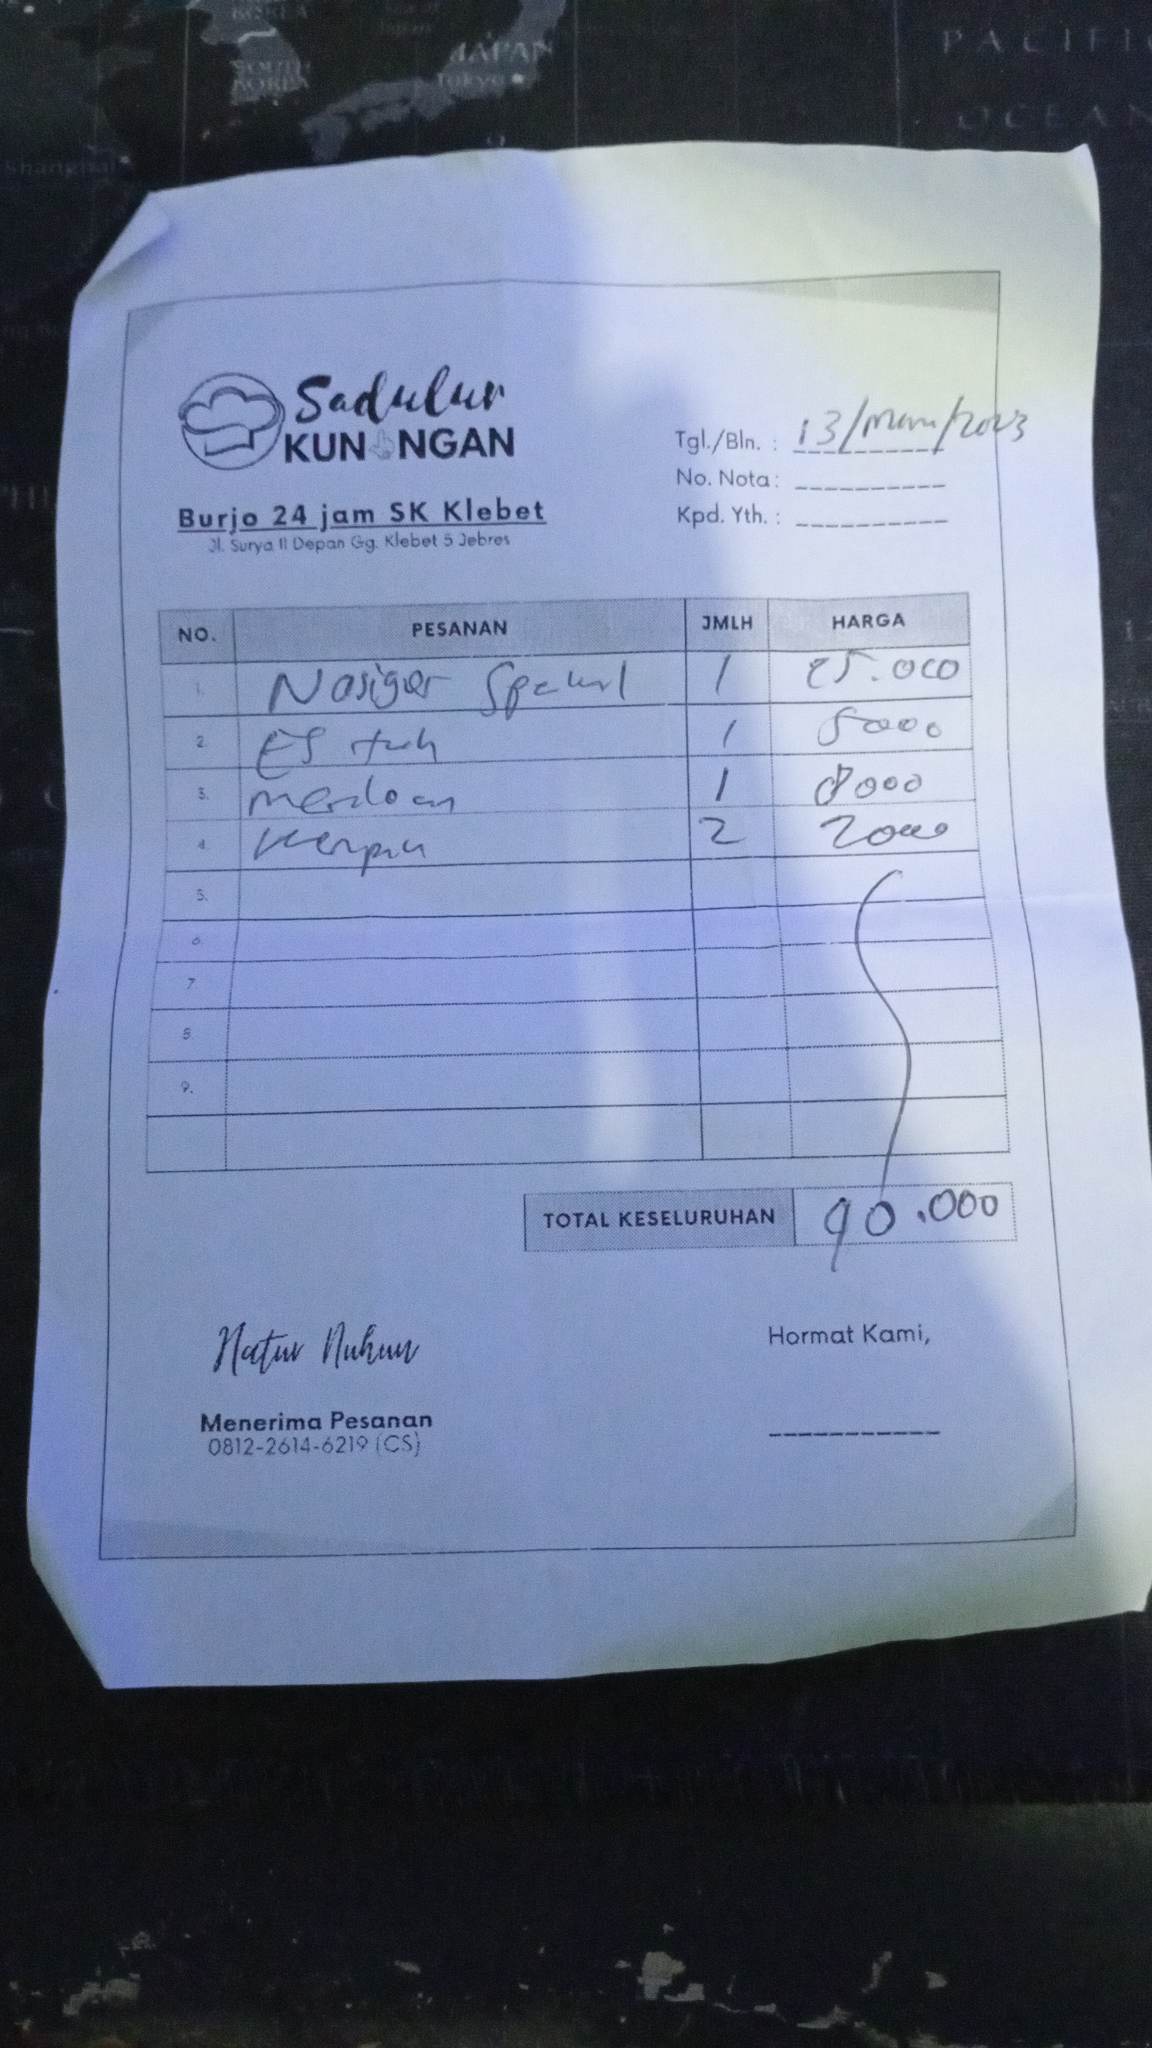 KOREA
SOUTH
KOREA
JAPAN
Tokyo
Shanghai
PACIFIC
OCEAN
Sadulur
KUNINGAN
Burjo 24 jam SK Klebet
Jl. Surya II Depan Gg. Klebet 5 Jebres
Tgl./Bln. : 13/Maret/2023
No. Nota :
Kpd. Yth. :
NO. PESANAN JMLH HARGA
1. Nasigor Spesial 1 25.000
2. Es teh 1 5000
3. mendoan 1 8000
4. 2 2000
5.
6.
7.
8.
9.
TOTAL KESELURUHAN 40.000
Hatur Nuhun
Hormat Kami,
Menerima Pesanan
0812-2614-6219 (CS)